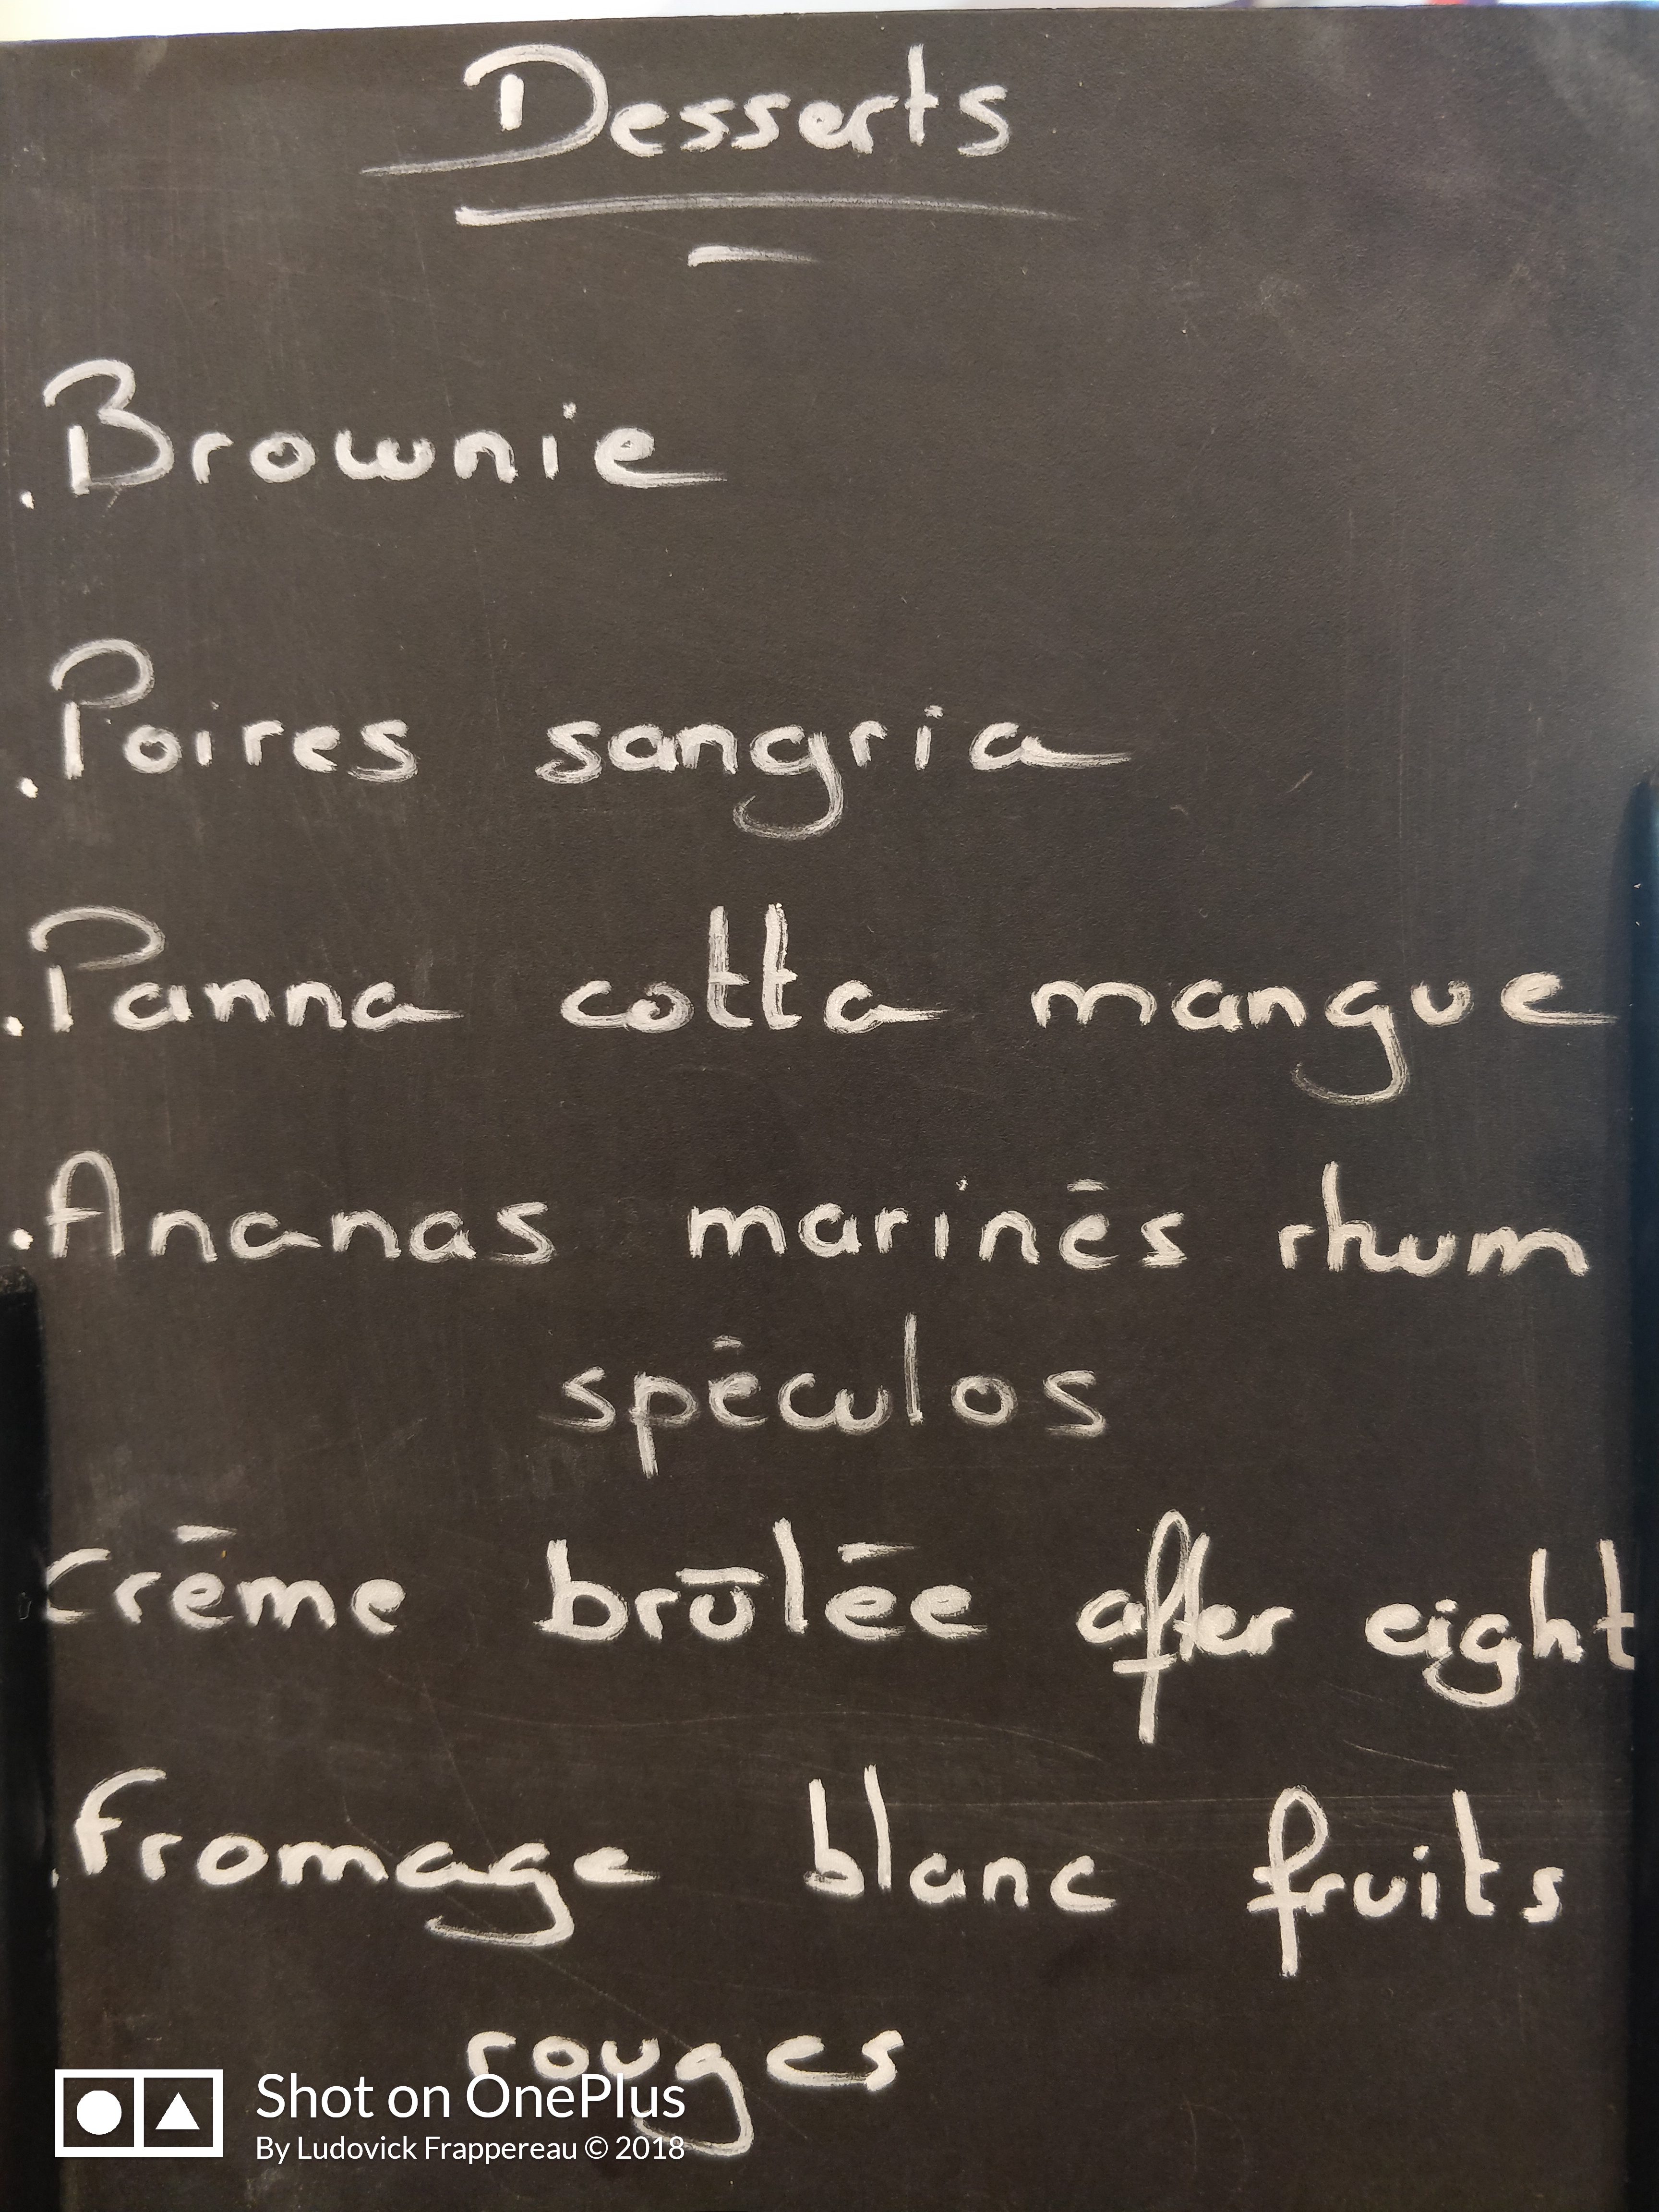 Desserts
. Brownie
. Poires sangria
. Panna cotta mangue
. Ananas marinés rhum
spéculos
. Crème brûlée after eight
. Fromage blanc fruits
rouges
Shot on OnePlus
By Ludovick Frappereau © 2018